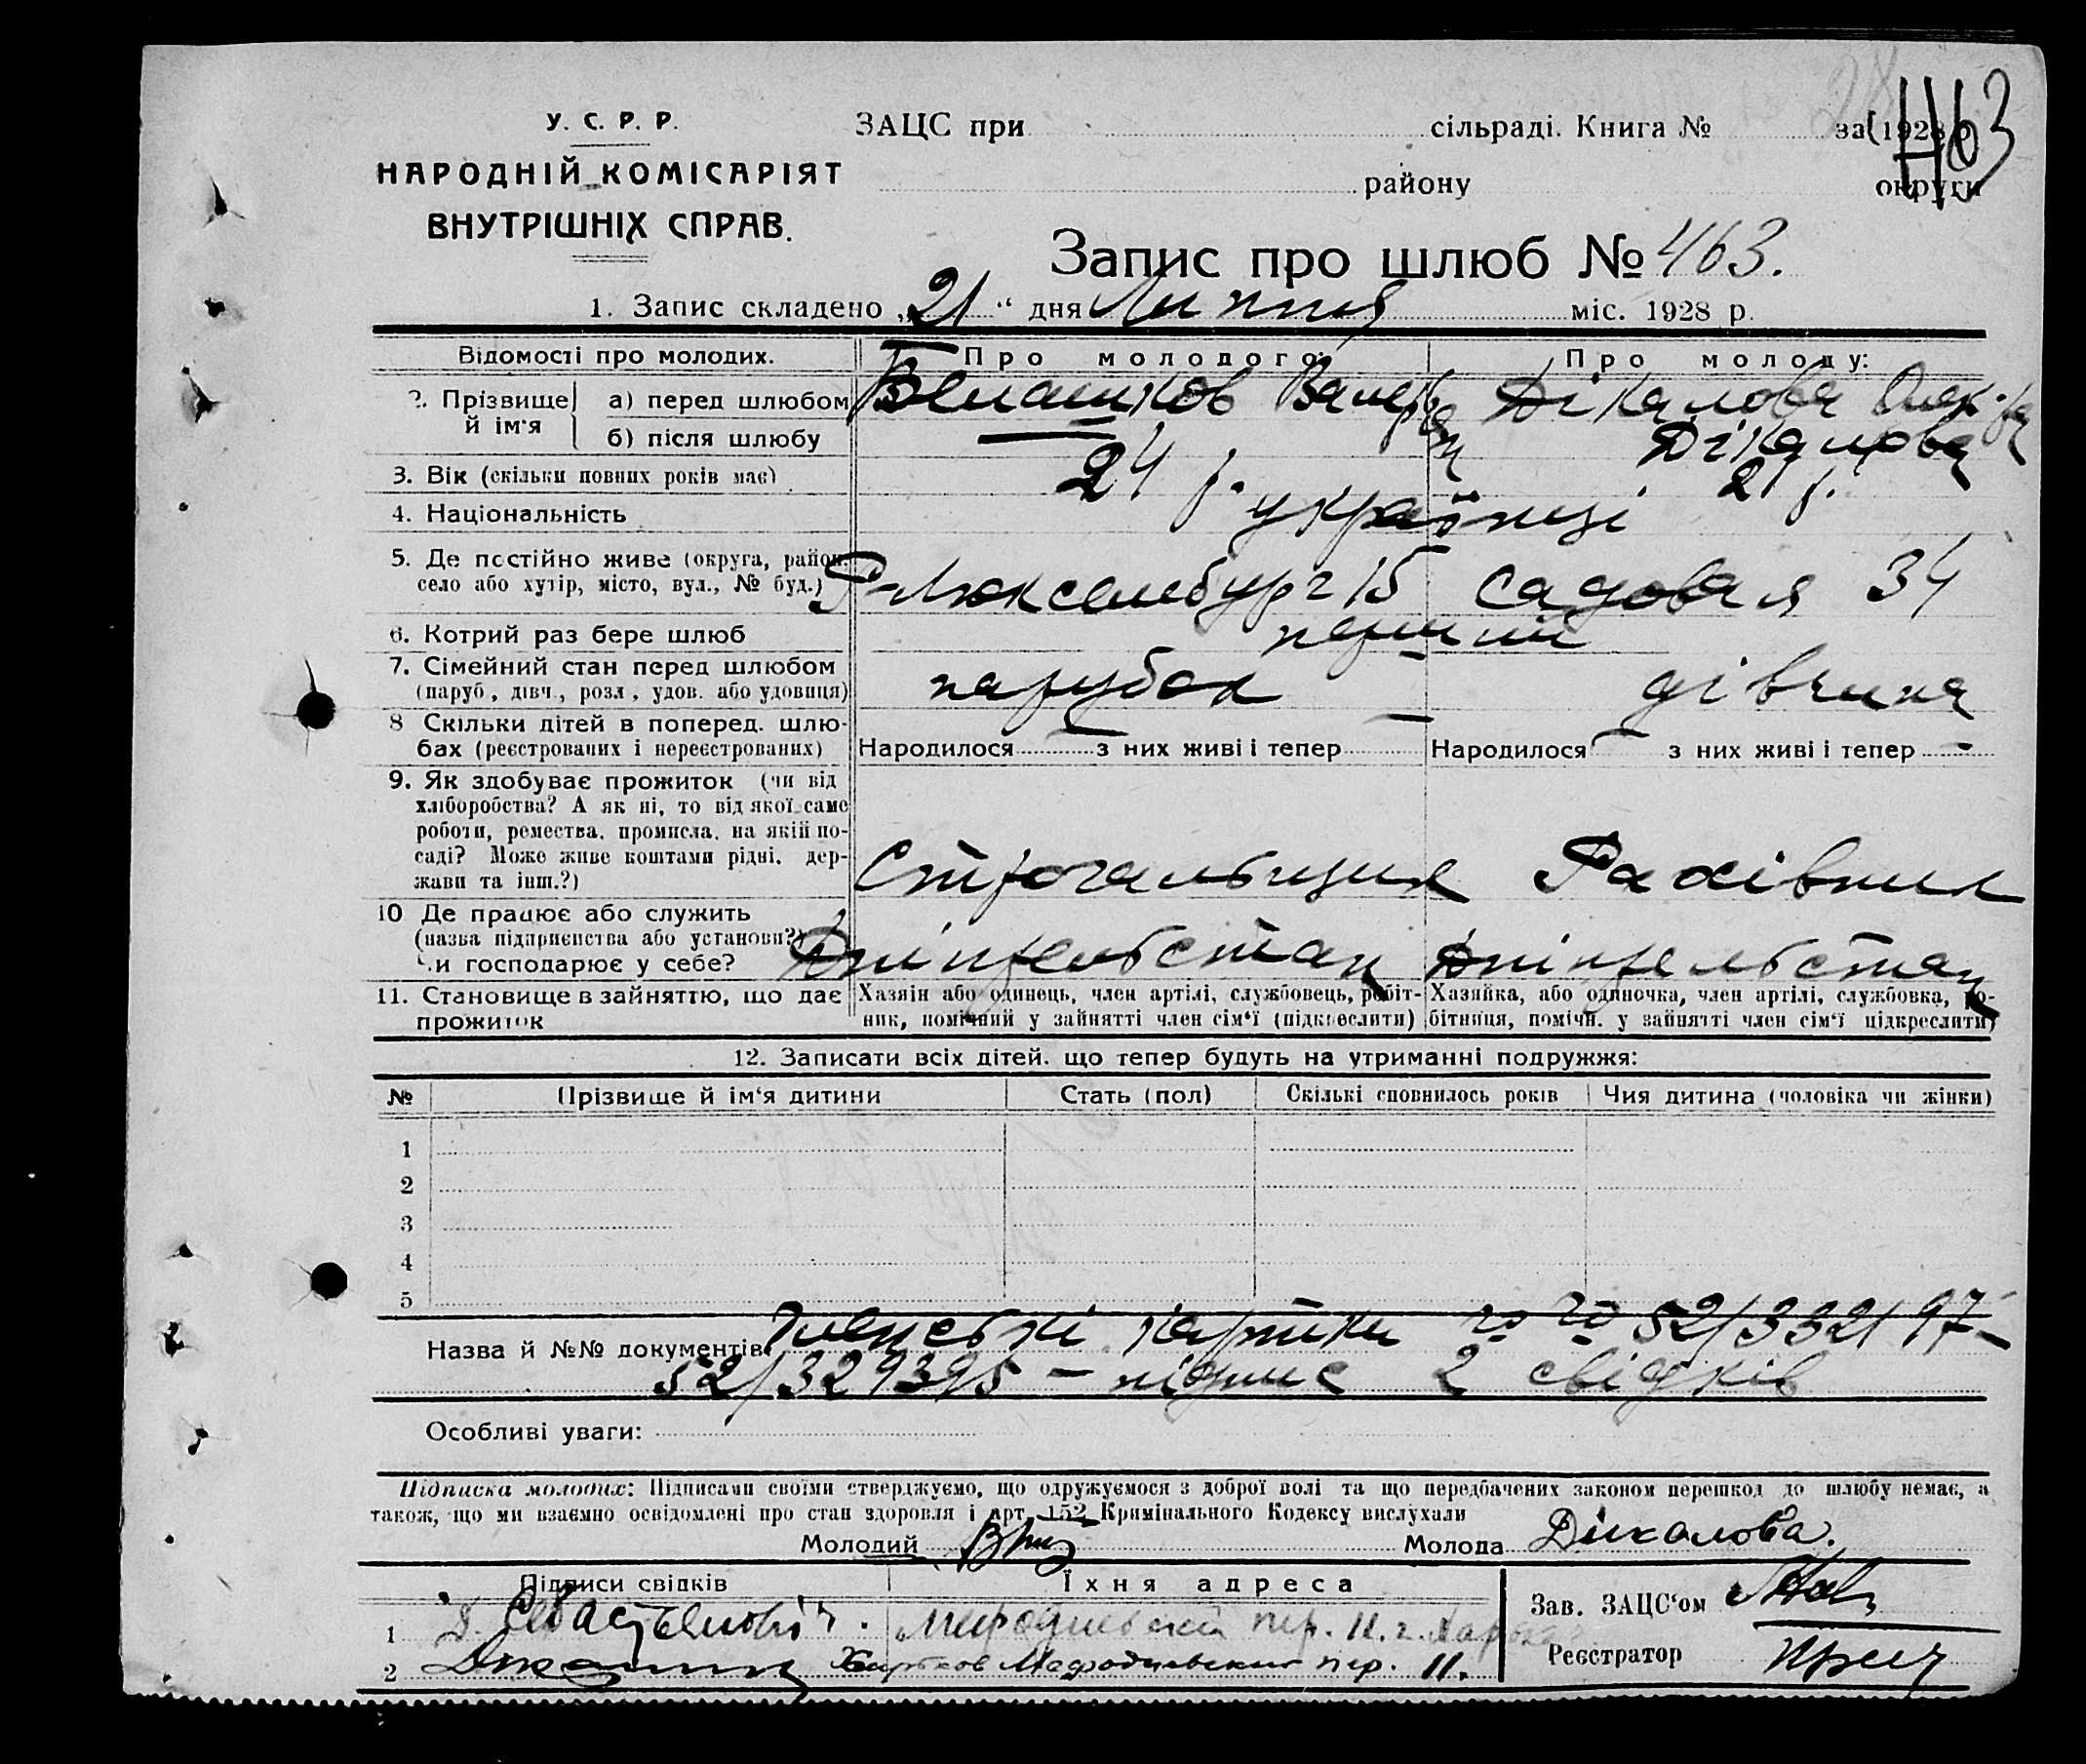 463
У. С. Р. Р.
НАРОДНІЙ КОМІСАРІЯТ
ВНУТРІШНІХ СПРАВ.
ЗАЦС при сільраді. Книга № за 1928 р.
району округи
Запис про шлюб № 463.
1. Запис складено „21“ дня Липня міс. 1928 р.
Відомості про молодих. Про молодого: Про молоду:
2. Прізвище й ім'я а) перед шлюбом Дікалова
б) після шлюбу Дікалова
3. Вік (скільки повних років має) 24 р. 21 р.
4. Національність українці
5. Де постійно живе (округа, район, село або хутір, місто, вул., № буд.) Р-Люксембург 15 Садовая 34
6. Котрий раз бере шлюб перший
7. Сімейний стан перед шлюбом (паруб., дівч., розл., удов. або удовиця) парубок дівчина
8 Скільки дітей в поперед. шлюбах (реєстрованих і нереєстрованих) Народилося — з них живі і тепер Народилося — з них живі і тепер -
9. Як здобуває прожиток (чи від хліборобства? А як ні, то від якої саме роботи, ремества, промисла, на якій посаді? Може живе коштами рідні, держави та інш.?)
10 Де працює або служить (назва підприємства або установи?) Чи господарює у себе? Дніпрельстан Дніпрельстан
11. Становище в зайняттю, що дає прожиток Хазяїн або одинець, член артілі, службовець, робітник, помічний у зайнятті член сім'ї (підкреслити) Хазяйка, або одиночка, член артілі, службовка, робітниця, помічн. у зайнятті член сім'ї підкреслити)
12. Записати всіх дітей, що тепер будуть на утриманні подружжя:
№ Прізвище й ім'я дитини Стать (пол) Скількі сповнилось років Чия дитина (чоловіка чи жінки)
1
2
3
4
5
Назва й №№ документів: Членські картки 52/332197 –
52/329395 – підпис 2 свідків
Особливі уваги:
Підписка молодих: Підписами своїми стверджуємо, що одружуємося з доброї волі та що передбачених законом перешкод до шлюбу немає, а
також, що ми взаємно освідомлені про стан здоровля і арт. 152 Кримінального Кодексу вислухали
Молодий Молода Дикалова.
Підписи свідків Їхня адреса Зав. ЗАЦС'ом
1 Д. пер. 11. г.
2 Харьков пер. 11. Реєстратор